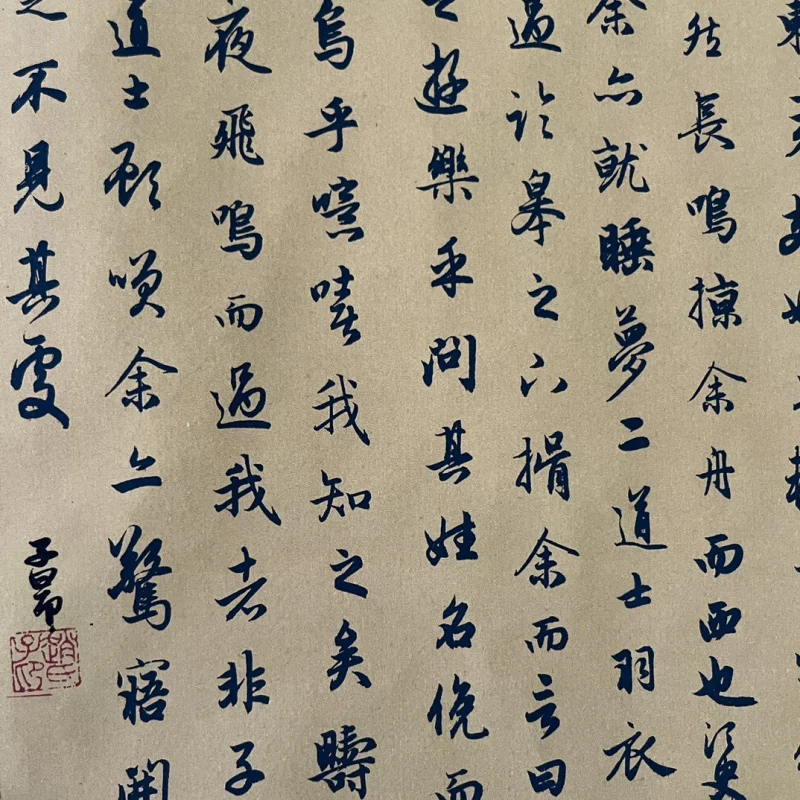 然長鳴掠余舟而西也須臾
余亦就睡夢二道士羽衣
過臨皋之下揖余而言曰
之遊樂乎問其姓名俛而
烏乎噫嘻我知之矣疇
夜飛鳴而過我者非子
道士顧咲余亦驚寤開
之不見其處
子昂
趙氏子昂